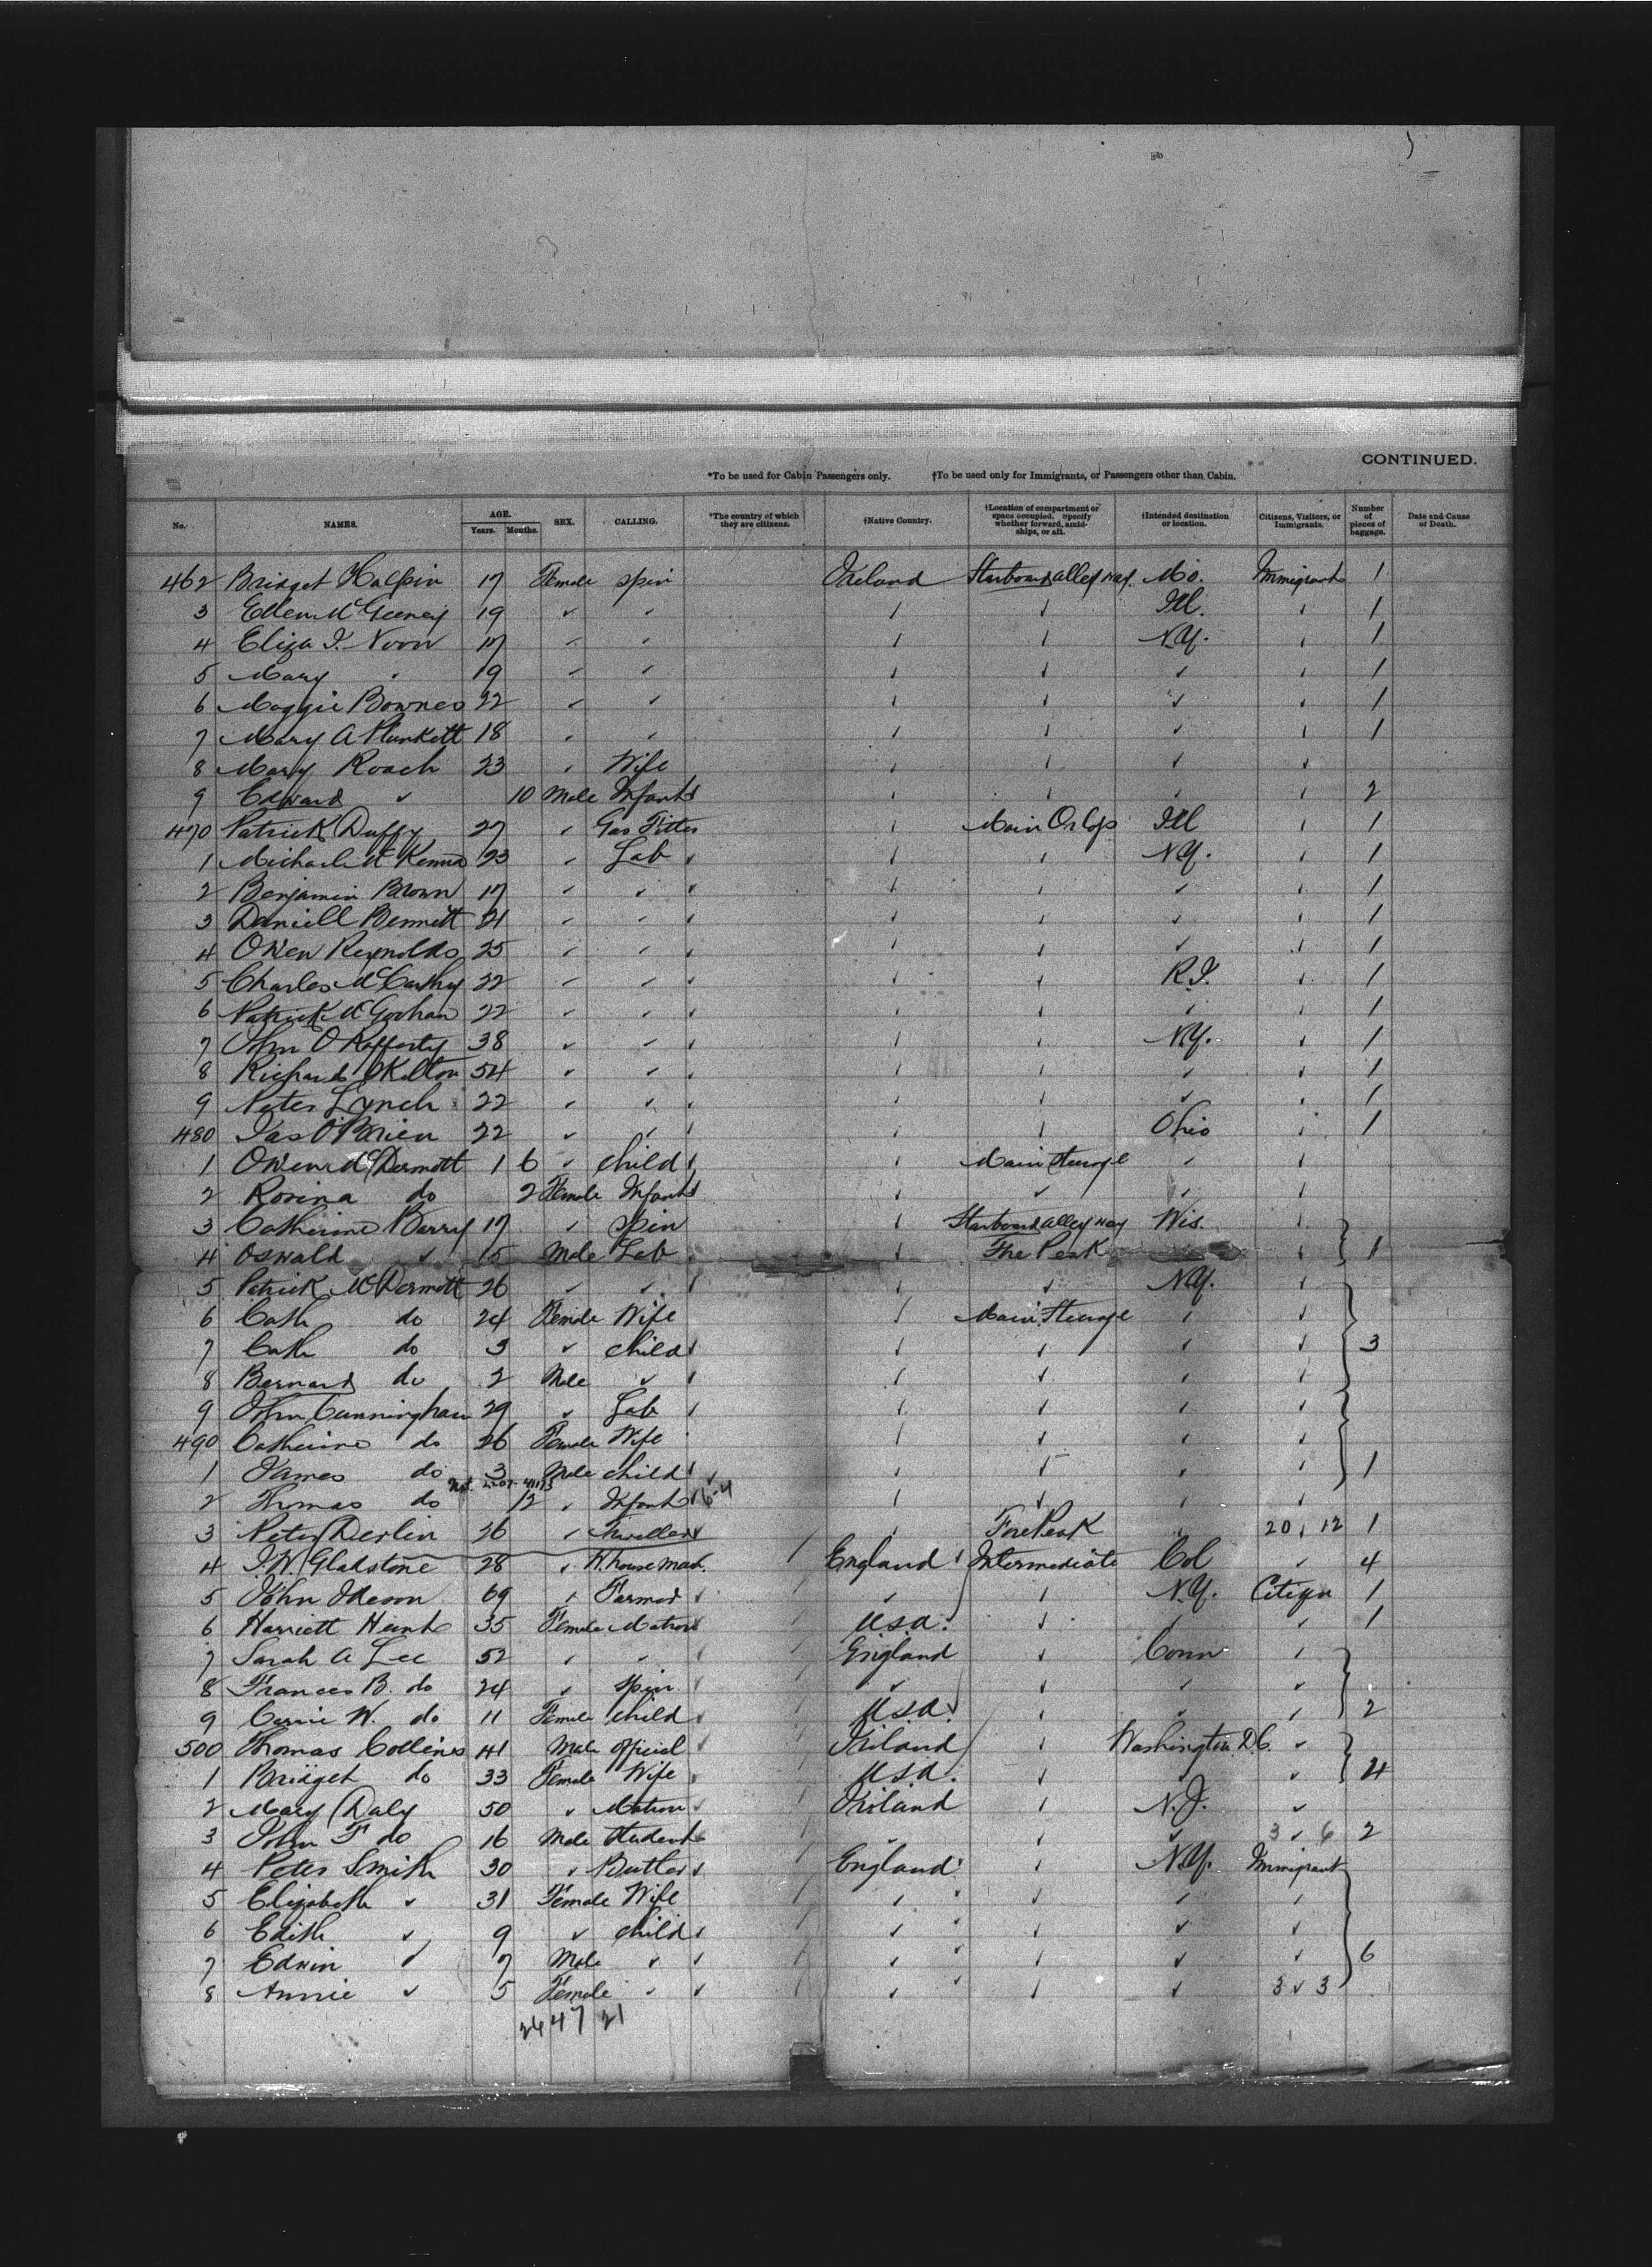 CONTINUED.
*To be used for Cabin Passengers only. †To be used only for Immigrants, or Passengers other than Cabin.
No. NAMES. AGE. Years. Months. SEX. CALLING. *The country of which they are citizens. †Native Country. †Location of compartment or space occupied. Specify whether forward, amidships, or aft. †Intended destination or location. Citizens, Visitors, or Immigrants. Number of pieces of baggage. Date and Cause of Death.
462 Bridget Halpin 17 Female Spin Ireland Starboard alley way. Mo. Immigrant 1
3 Ellen McGeeney 19 ✓ ✓ ✓ ✓ Ill. ✓ 1
4 Eliza J. Noon 17 ✓ ✓ ✓ ✓ N.Y. ✓ 1
5 Mary ✓ 19 ✓ ✓ ✓ ✓ ✓ ✓ 1
6 Maggie Bownes 22 ✓ ✓ ✓ ✓ ✓ ✓ 1
7 Mary A Plunkett 18 ✓ ✓ ✓ ✓ ✓ ✓ 1
8 Mary Roach 23 ✓ Wife ✓ ✓ ✓ ✓
9 Edward ✓ 10 Male Infant ✓ ✓ ✓ ✓ 2
470 Patrick Duffy 27 ✓ Gas Fitter ✓ Main Orlop Ill ✓ 1
1 Michael McKenna 23 ✓ Lab ✓ ✓ N.Y. ✓ 1
2 Benjamin Brown 17 ✓ ✓ ✓ ✓ ✓ ✓ 1
3 Daniell Bennett 21 ✓ ✓ ✓ ✓ ✓ ✓ 1
4 Owen Reynolds 25 ✓ ✓ ✓ ✓ ✓ ✓ 1
5 Charles McCarthy 22 ✓ ✓ ✓ ✓ R.I. ✓ 1
6 Patrick 22 ✓ ✓ ✓ ✓ ✓ ✓ 1
7 John O Rafferty 38 ✓ ✓ ✓ ✓ N.Y. ✓ 1
8 Richard Skelton 54 ✓ ✓ ✓ ✓ ✓ ✓ 1
9 Peter Lynch 22 ✓ ✓ ✓ ✓ ✓ ✓ 1
480 Jas O'Brien 22 ✓ ✓ ✓ ✓ Ohio ✓ 1
1 Owen McDermott 1 6 ✓ Child ✓ Main Steerage ✓ ✓
2 Rosina do 2 Female Infant ✓ ✓ ✓ ✓
3 Catherine Barry 17 ✓ Spin ✓ Starboard alley way Wis. ✓
4 Oswald ✓ 15 Male Lab ✓ Fore Peak ✓ 1
5 Patrick McDermott 26 ✓ ✓ ✓ ✓ N.Y. ✓
6 Cath do 24 Female Wife ✓ Main Steerage ✓ ✓
7 Cath do 3 ✓ Child ✓ ✓ ✓ ✓ 3
8 Bernard do 2 Male ✓ ✓ ✓ ✓ ✓
9 John Cunningham 29 ✓ Lab ✓ ✓ ✓ ✓
490 Catherine do 26 Female Wife ✓ ✓ ✓ ✓
1 James do 3 Male Child ✓ ✓ ✓ ✓ 1
2 Thomas do 12 ✓ Infant ✓ ✓ ✓ ✓
3 Peter Derlin 26 ✓ ✓ Fore Peak ✓ 20 12 1
4 J.W. Gladstone 28 ✓ England Intermediate Col ✓ 4
5 John Ideson 69 ✓ Farmer ✓ ✓ N.Y. Citizen 1
6 Harriett Hunt 35 Female Matron U.S.A. ✓ ✓ ✓ 1
7 Sarah A Lee 52 ✓ ✓ England ✓ Conn ✓
8 Frances B. do 24 ✓ Spin ✓ ✓ ✓ ✓
9 Carrie W. do 11 Female Child U.S.A. ✓ ✓ ✓ 2
500 Thomas Collins 41 Male Official Ireland ✓ Washington D.C. ✓
1 Bridget do 33 Female Wife U.S.A. ✓ ✓ ✓ 4
2 Mary Daly 50 ✓ Matron Ireland ✓ N.J. ✓
3 John F do 16 Male Student ✓ ✓ ✓ 3 ✓ 6 2
4 Peter Smith 30 ✓ Butler England ✓ N.Y. Immigrant
5 Elizabeth ✓ 31 Female Wife ✓ ✓ ✓ ✓
6 Edith ✓ 9 ✓ Child ✓ ✓ ✓ ✓
7 Edwin ✓ 7 Male ✓ ✓ ✓ ✓ ✓ 6
8 Annie ✓ 5 Female ✓ ✓ ✓ ✓ 3 ✓ 3
26 47 21